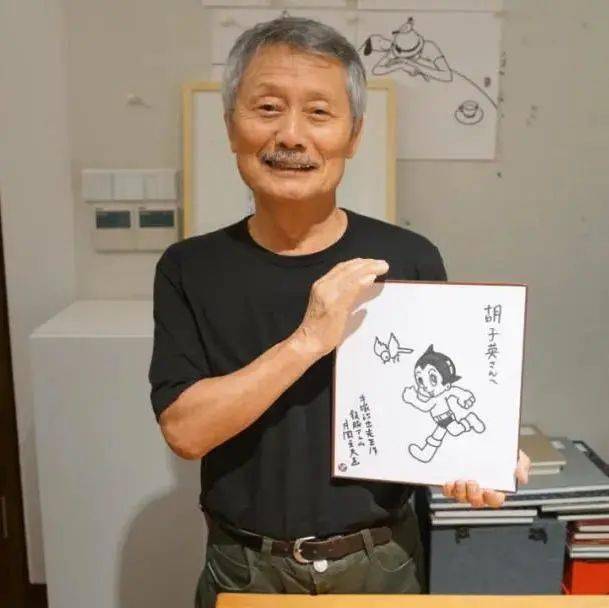 胡子英さんへ
手塚治虫先生作
鉄腕アトム
月岡貞夫画